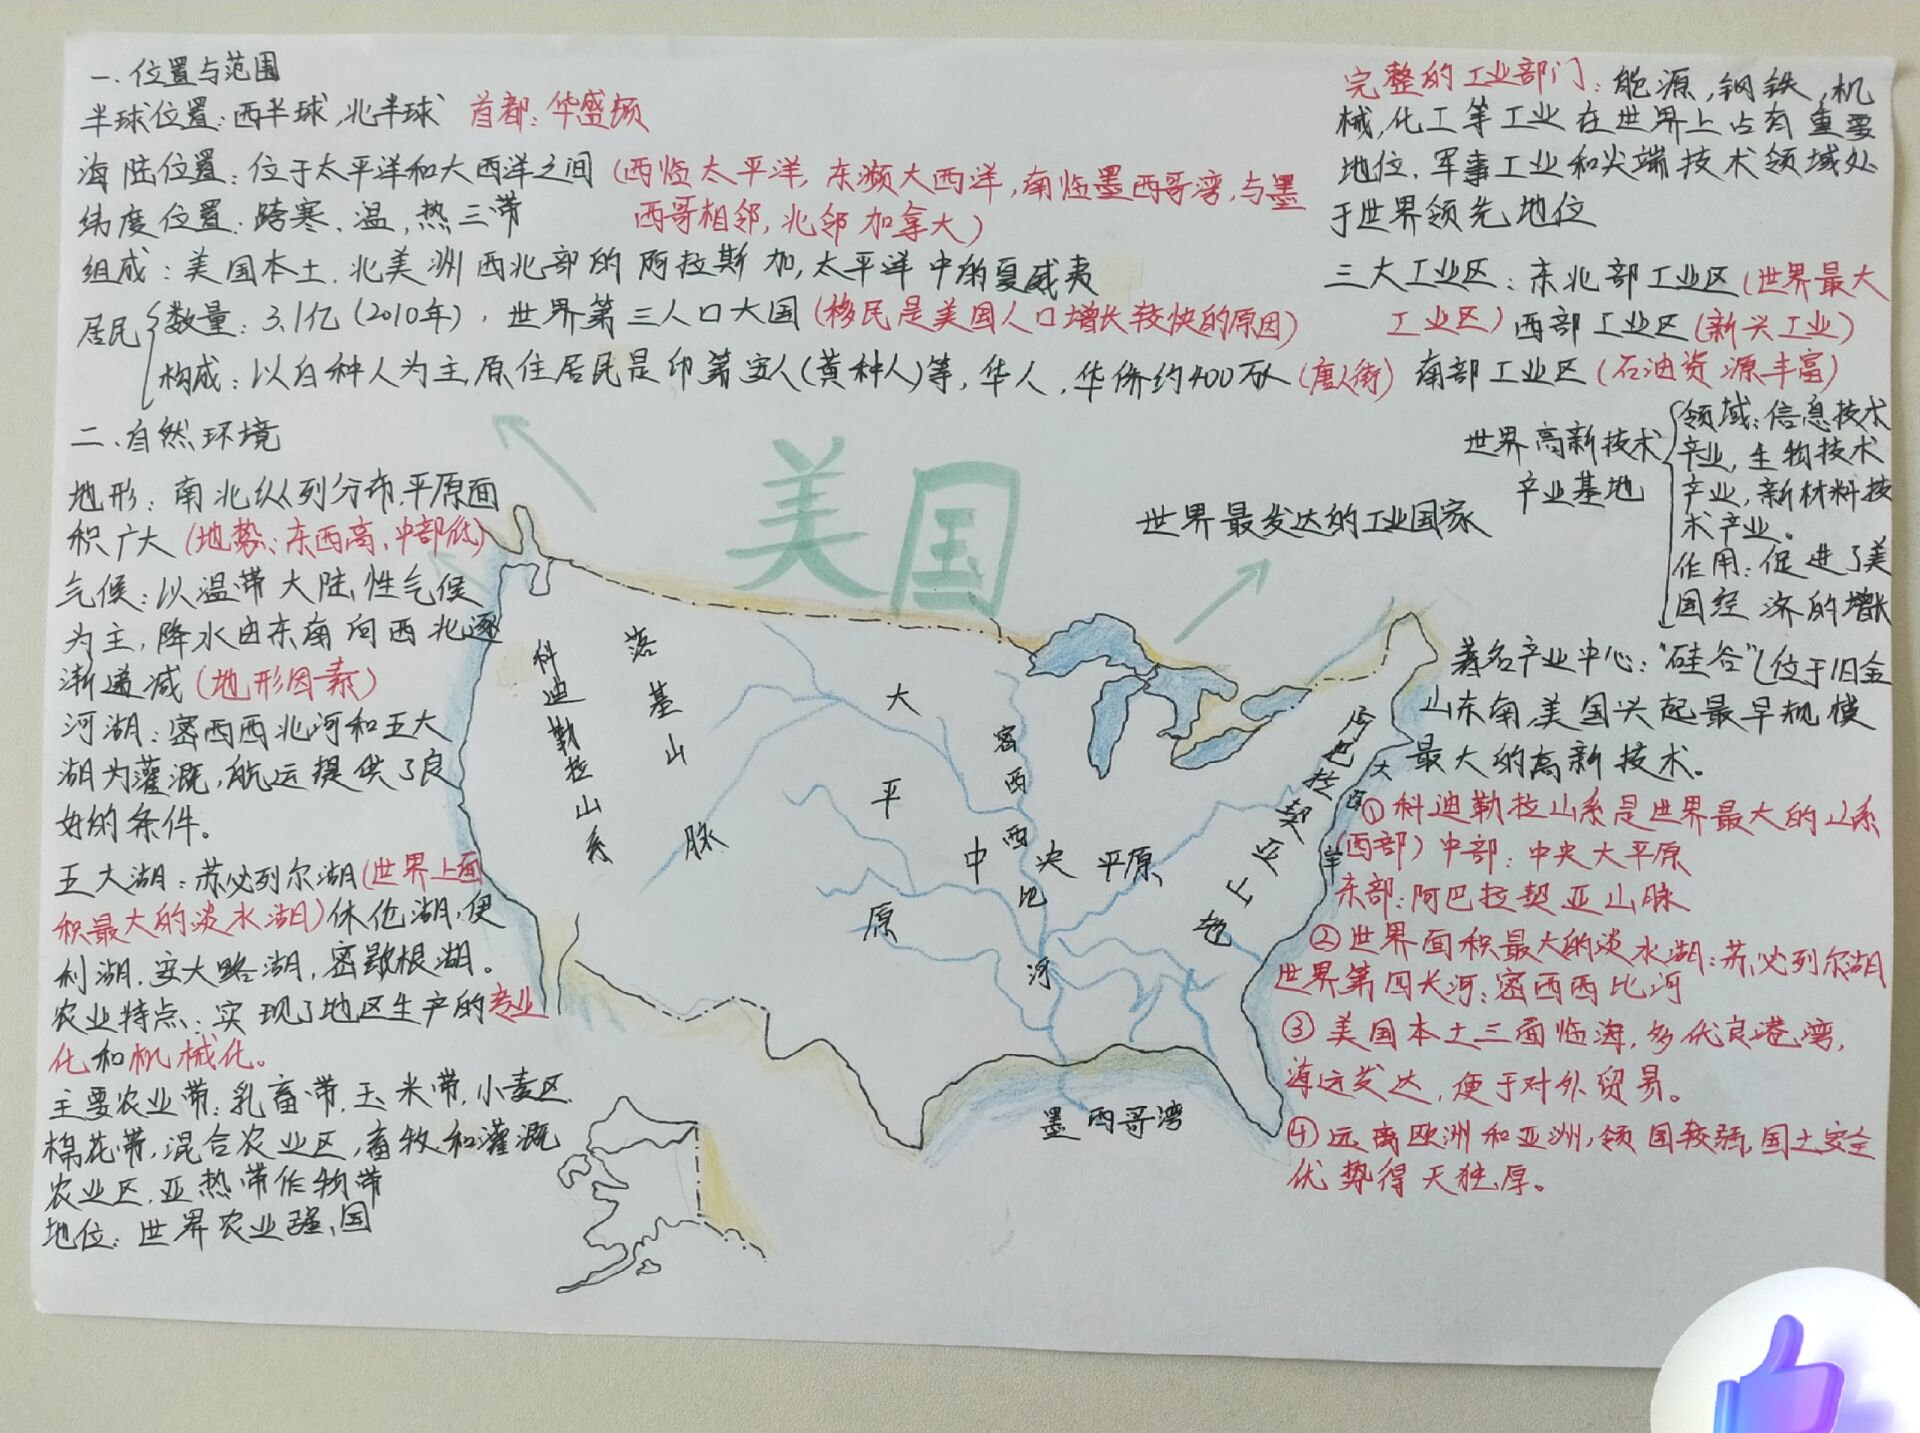 一.位置与范围
半球位置:西半球,北半球 首都:华盛顿
海陆位置:位于太平洋和大西洋之间(西临太平洋,东濒大西洋,南临墨西哥湾,与墨
西哥相邻,北邻加拿大)
纬度位置:跨寒、温,热三带
组成:美国本土.北美洲西北部的阿拉斯加,太平洋中的夏威夷
居民
数量:3.1亿(2010年),世界第三人口大国(移民是美国人口增长较快的原因)
构成:以白种人为主,原住居民是印第安人(黄种人)等,华人,华侨约400万人(唐人街)
二.自然环境
地形:南北纵列分布,平原面
积广大(地势:东西高,中部低)
气候:以温带大陆性气候
为主,降水由东南向西北逐
渐递减(地形因素)
河湖:密西西北河和五大
湖为灌溉,航运提供了良
好的条件。
五大湖:苏必列尔湖(世界上面
积最大的淡水湖)休伦湖,伊
利湖.安大略湖,密歇根湖。
农业特点:实现了地区生产的专业
化和机械化。
主要农业带:乳畜带,玉米带,小麦区.
棉花带,混合农业区,畜牧和灌溉
农业区,亚热带作物带
地位:世界农业强国
美国
科迪勒拉山系
落基山脉
大平原
密西西比河
中央平原
阿巴拉契亚山
大西洋
墨西哥湾
完整的工业部门:能源,钢铁,机
械,化工等工业在世界上占有重要
地位.军事工业和尖端技术领域处
于世界领先地位
三大工业区:东北部工业区(世界最大
工业区)西部工业区(新兴工业)
南部工业区(石油资源丰富)
世界最发达的工业国家
世界高新技术
产业基地
领域:信息技术
产业,生物技术
产业,新材料技
术产业。
作用:促进了美
国经济的增长
著名产业中心:"硅谷"(位于旧金
山东南,美国兴起最早规模
最大的高新技术。
①科迪勒拉山系是世界最大的山系
(西部)中部:中央大平原
东部:阿巴拉契亚山脉
②世界面积最大的淡水湖:苏必列尔湖
世界第四长河:密西西比河
③美国本土三面临海,多优良港湾,
海运发达,便于对外贸易。
④远离欧洲和亚洲,领国较弱,国土安全
优势得天独厚。